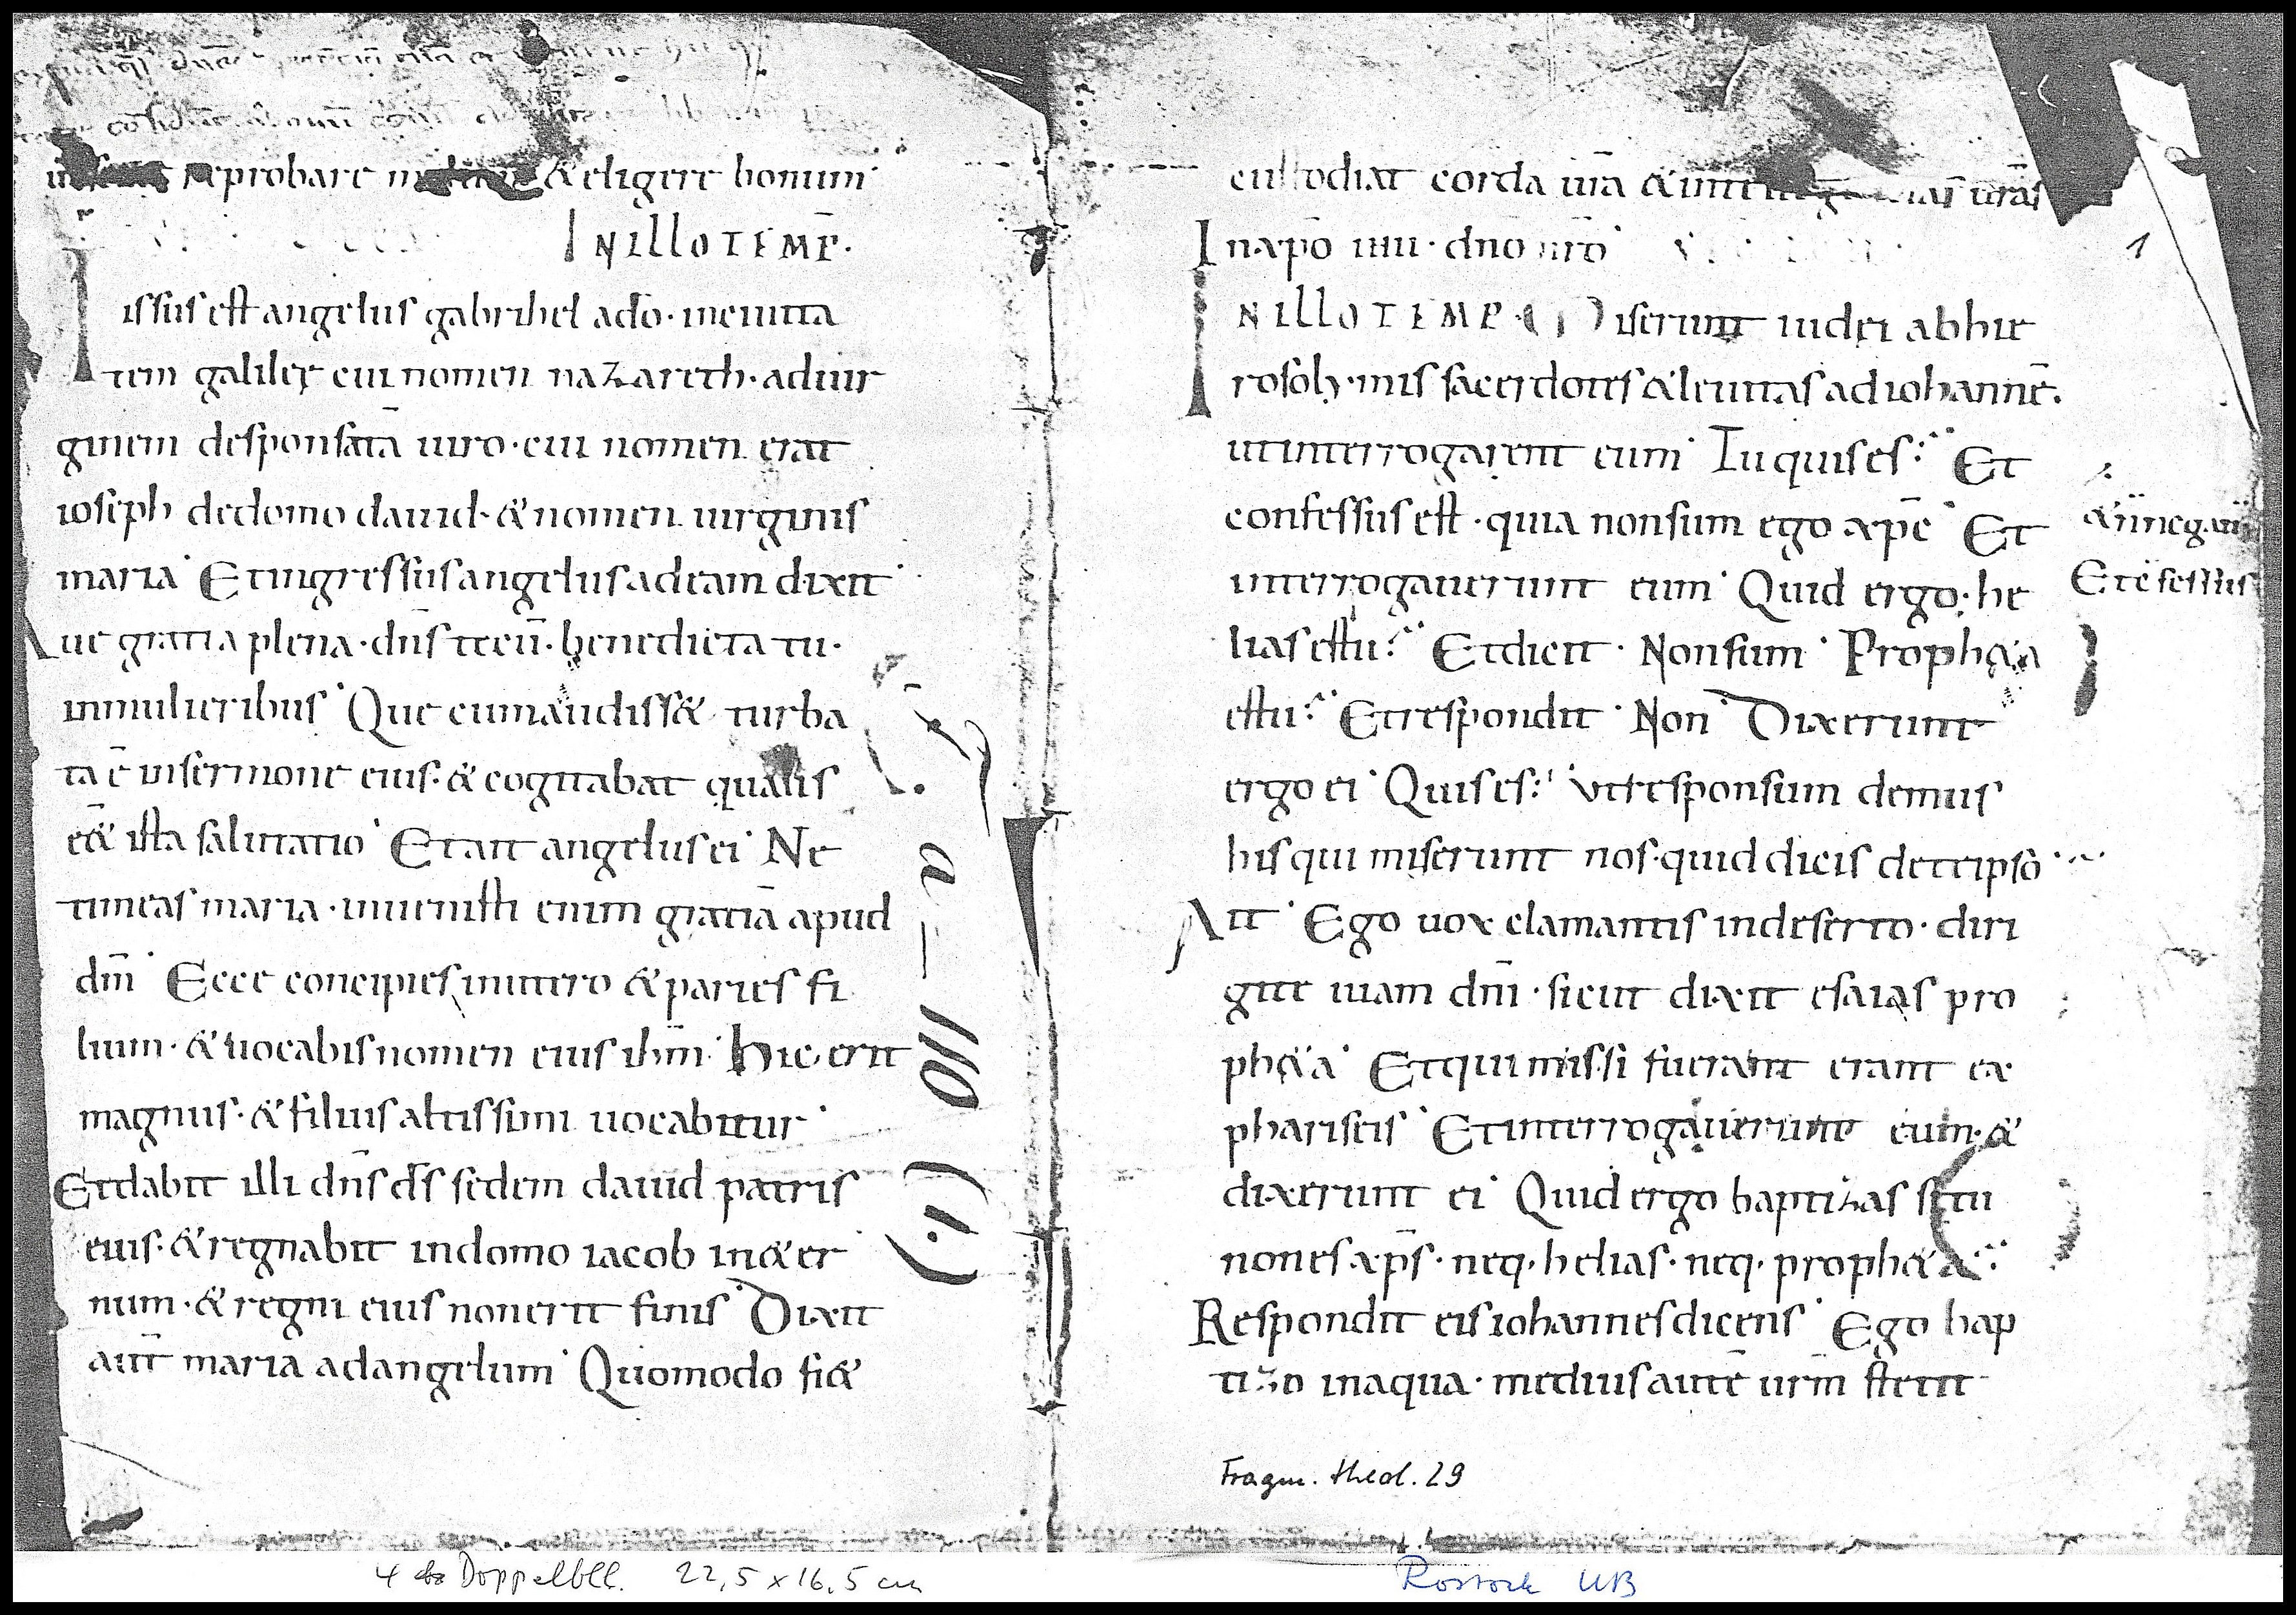 reprobare & eligere bonum
IN ILLO TEMP̄.
issus est angelus gabrihel a do · in ciuita
tem galileę cui nomen nazareth · ad uir
ginem desponsatā uiro · cui nomen erat
ioseph de domo dauid · & nomen uirginis
maria Et ingressus angelus ad eam dixit
Aue gratia plena · dn̄s tecū · benedicta tu ·
in mulieribus Que cum audiss& turba
ta ē in sermone eius · & cogitabat qualis
eē& ista salutatio Et ait angelus ei Ne
timeas maria · inuenisti enim gratiā apud
dm̄ Ecce concipies in utero & paries fi
lium · & uocabis nomen eius ihm̄ Hic erit
magnus · & filius altissimi uocabitur
Et dabit illi dn̄s ds̄ sedem dauid patris
eius · & regnabit in domo iacob in &er
num · & regni eius non erit finis Dixit
aūt maria ad angelum Quomodo fi&
a – 110 (1.)
custodiat corda ur̄a & int urās
In xp̄o ihu · dno nr̄o
IN ILLO TEMP · iserunt iudei ab hie
rosoly · mis sacerdotes & leuitas ad iohannē ·
ut interrogarent eum Tu quis es? Et
confessus est · quia non sum ego xp̄c Et
& n̄ negauit
Et c̄fessus
interrogauerunt eum Quid ergo · he
lias es tu? Et dicit · Non sum Proph&a
es tu? Et respondit · Non Dixerunt
ergo ei Quis es? Vt responsum demus
his qui miserunt nos · quid dicis de te ipso
Ait Ego uox clamantis in deserto · diri
gite uiam dn̄i · sicut dixit esaias pro
ph&a Et qui missi fuerant erant ex
phariseis Et interrogauerunt eum · &
dixerunt ei Quid ergo baptizas si tu
non es xp̄s · neq · helias · neq · proph&a?
Respondit eis iohannes dicens Ego bap
tizo in aqua · medius autē urm̄ stetit
1
Fragm. theol. 29
4 Doppelbll. 22,5 x 16,5 cm
Rostock UB